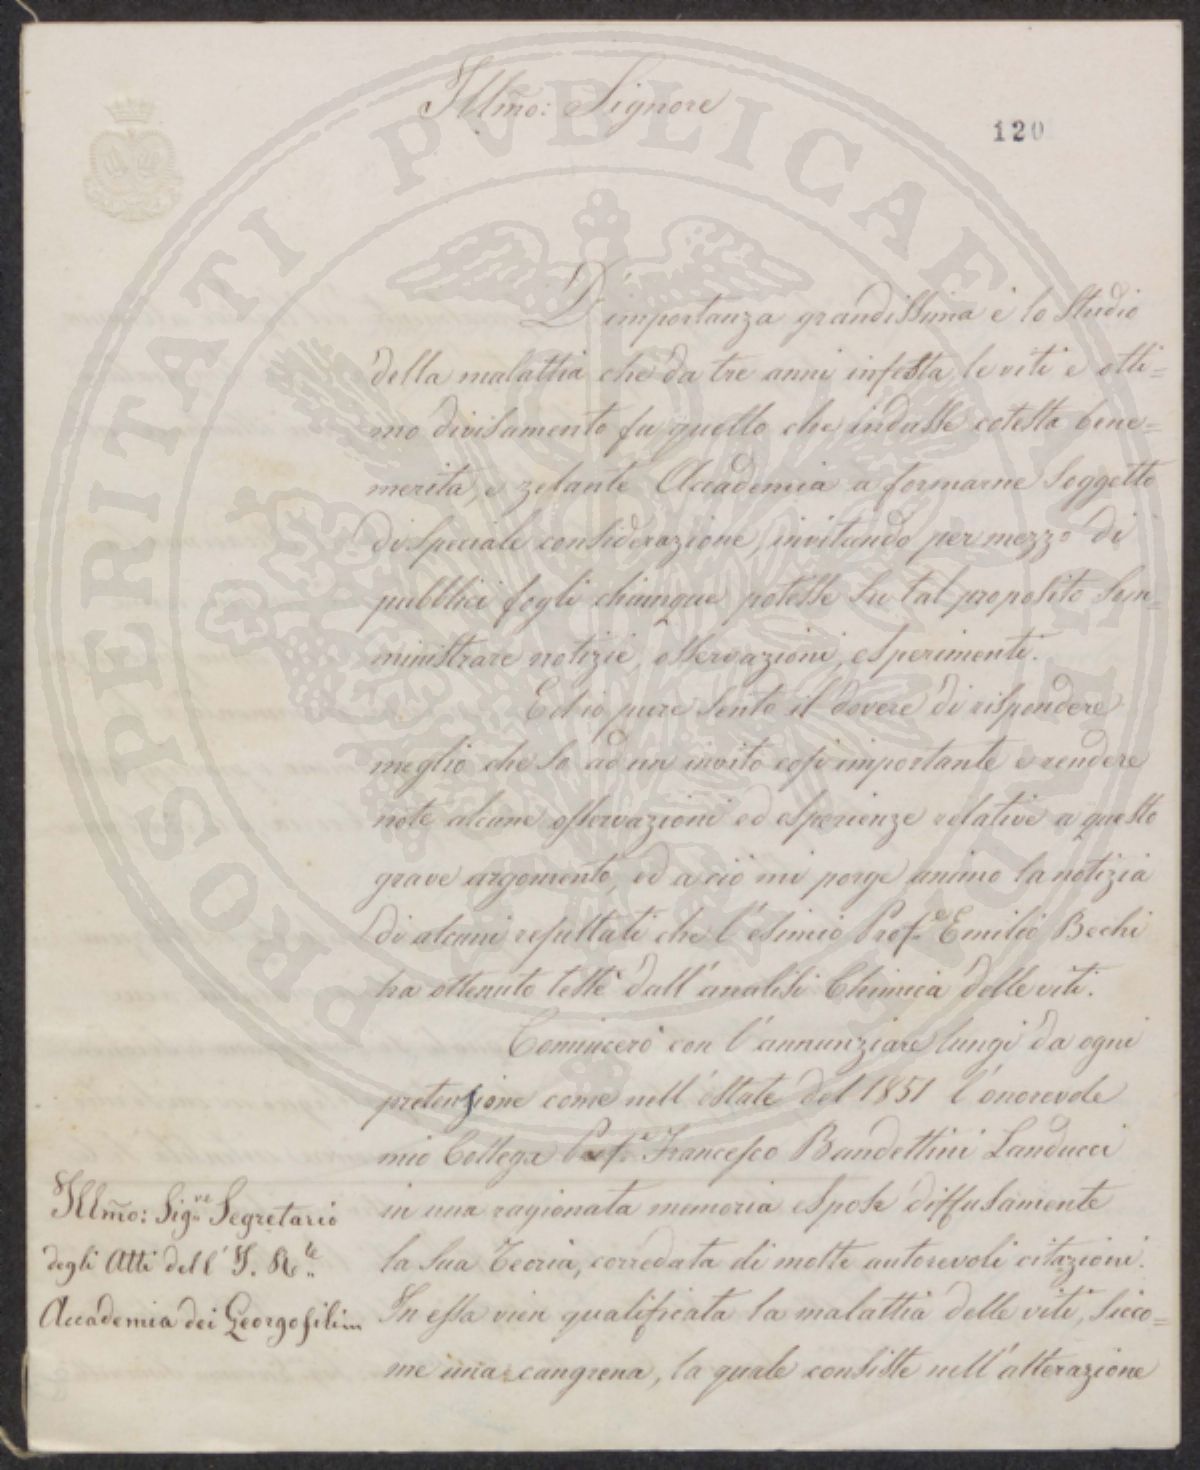 Illm̃o: Signore
120
D'importanza grandissima è lo studio
della malattia che da tre anni infesta le viti e otti=
mo divisamento fu quello che indusse cotesta bene=
merita, e zelante Accademia a formarne soggetto
di speciale considerazione, invitando per mezzo di
pubblici fogli chiunque potesse su tal proposito som=
ministrare notizie, osservazioni, esperimenti.
Ed io pure sento il dovere di rispondere
meglio che so ad un invito così importante e rendere
note alcune osservazioni ed esperienze relative a questo
grave argomento, ed a ciò mi porge animo la notizia
di alcuni resultati che l'esimio Prof.e Emilio Bechi
ha ottenuto testè dall'analisi Chimica delle viti.
Comincerò con l'annunziare lungi da ogni
pretensione come nell'estate del 1851 l'onorevole
mio Collega Prof.e Francesco Bandettini Landucci
in una ragionata memoria espose diffusamente
la sua Teoria, corredata di molte autorevoli citazioni.
In essa vien qualificata la malattia delle viti, sicco=
me una cangrena, la quale consiste nell'alterazione
Illm̃o: Sig.re Segretario
degli Atti dell'I. R.le
Accademia dei Georgofili
PROSPERITATI PVBLICAE